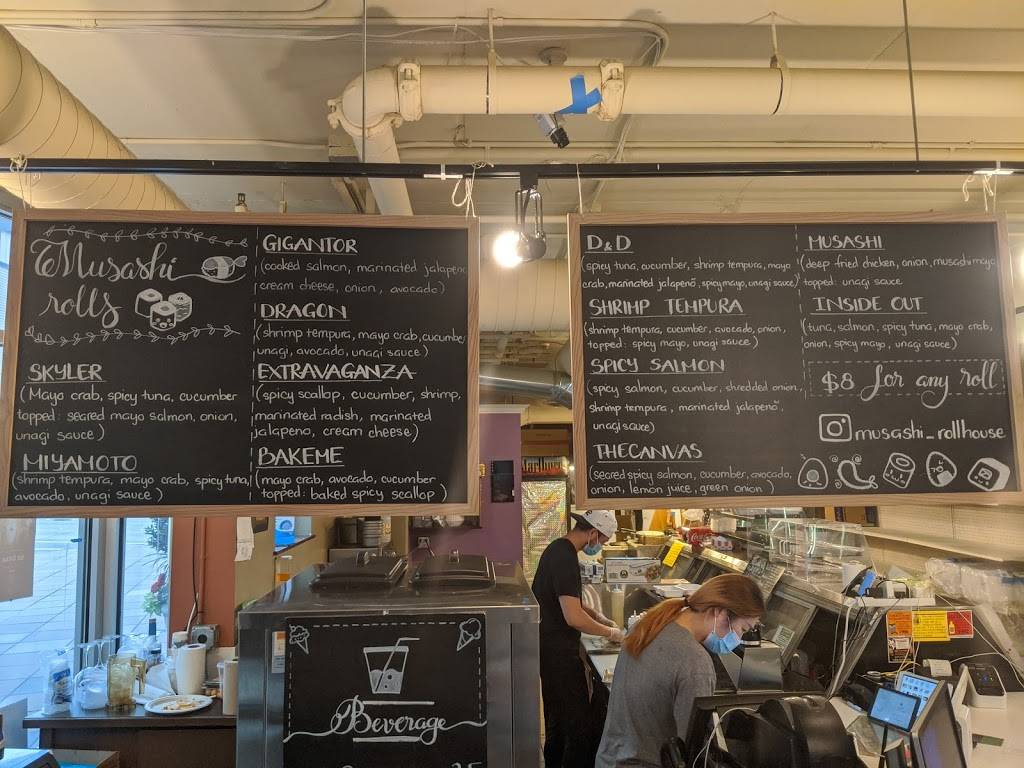 Musashi
rolls
SKYLER
(Mayo crab, spicy tuna, cucumber
topped: seared mayo salmon, onion,
unagi sauce)
MIYAMOTO
(shrimp tempura, mayo crab, spicy tuna,
avocado, unagi sauce)
GIGANTOR
(cooked salmon, marinated jalapeno
cream cheese, onion, avocado)
DRAGON
(shrimp tempura, mayo crab, cucumber
unagi, avocado, unagi sauce)
EXTRAVAGANZA
(spicy scallop, cucumber, shrimp,
marinated radish, marinated
jalapeno, cream cheese)
BAKEME
(mayo crab, avocado, cucumber
topped: baked spicy scallop)
D&D
(spicy tuna, cucumber, shrimp tempura, mayo
crab, marinated jalapeño, spicy mayo, unagi sauce)
SHRIMP TEMPURA
(shrimp tempura, cucumber, avocado, onion,
topped: spicy mayo, unagi sauce)
SPICY SALMON
(spicy salmon, cucumber, shredded onion,
shrimp tempura, marinated jalapeño,
unagi sauce)
THECANVAS
(seared spicy salmon, cucumber, avocado,
onion, lemon juice, green onion)
MUSASHI
(deep fried chicken, onion, musashi mayo
topped: unagi sauce
INSIDE OUT
(tuna, salmon, spicy tuna, mayo crab,
onion, spicy mayo, unagi sauce)
$8 for any roll
musashi_rollhouse
Beverage